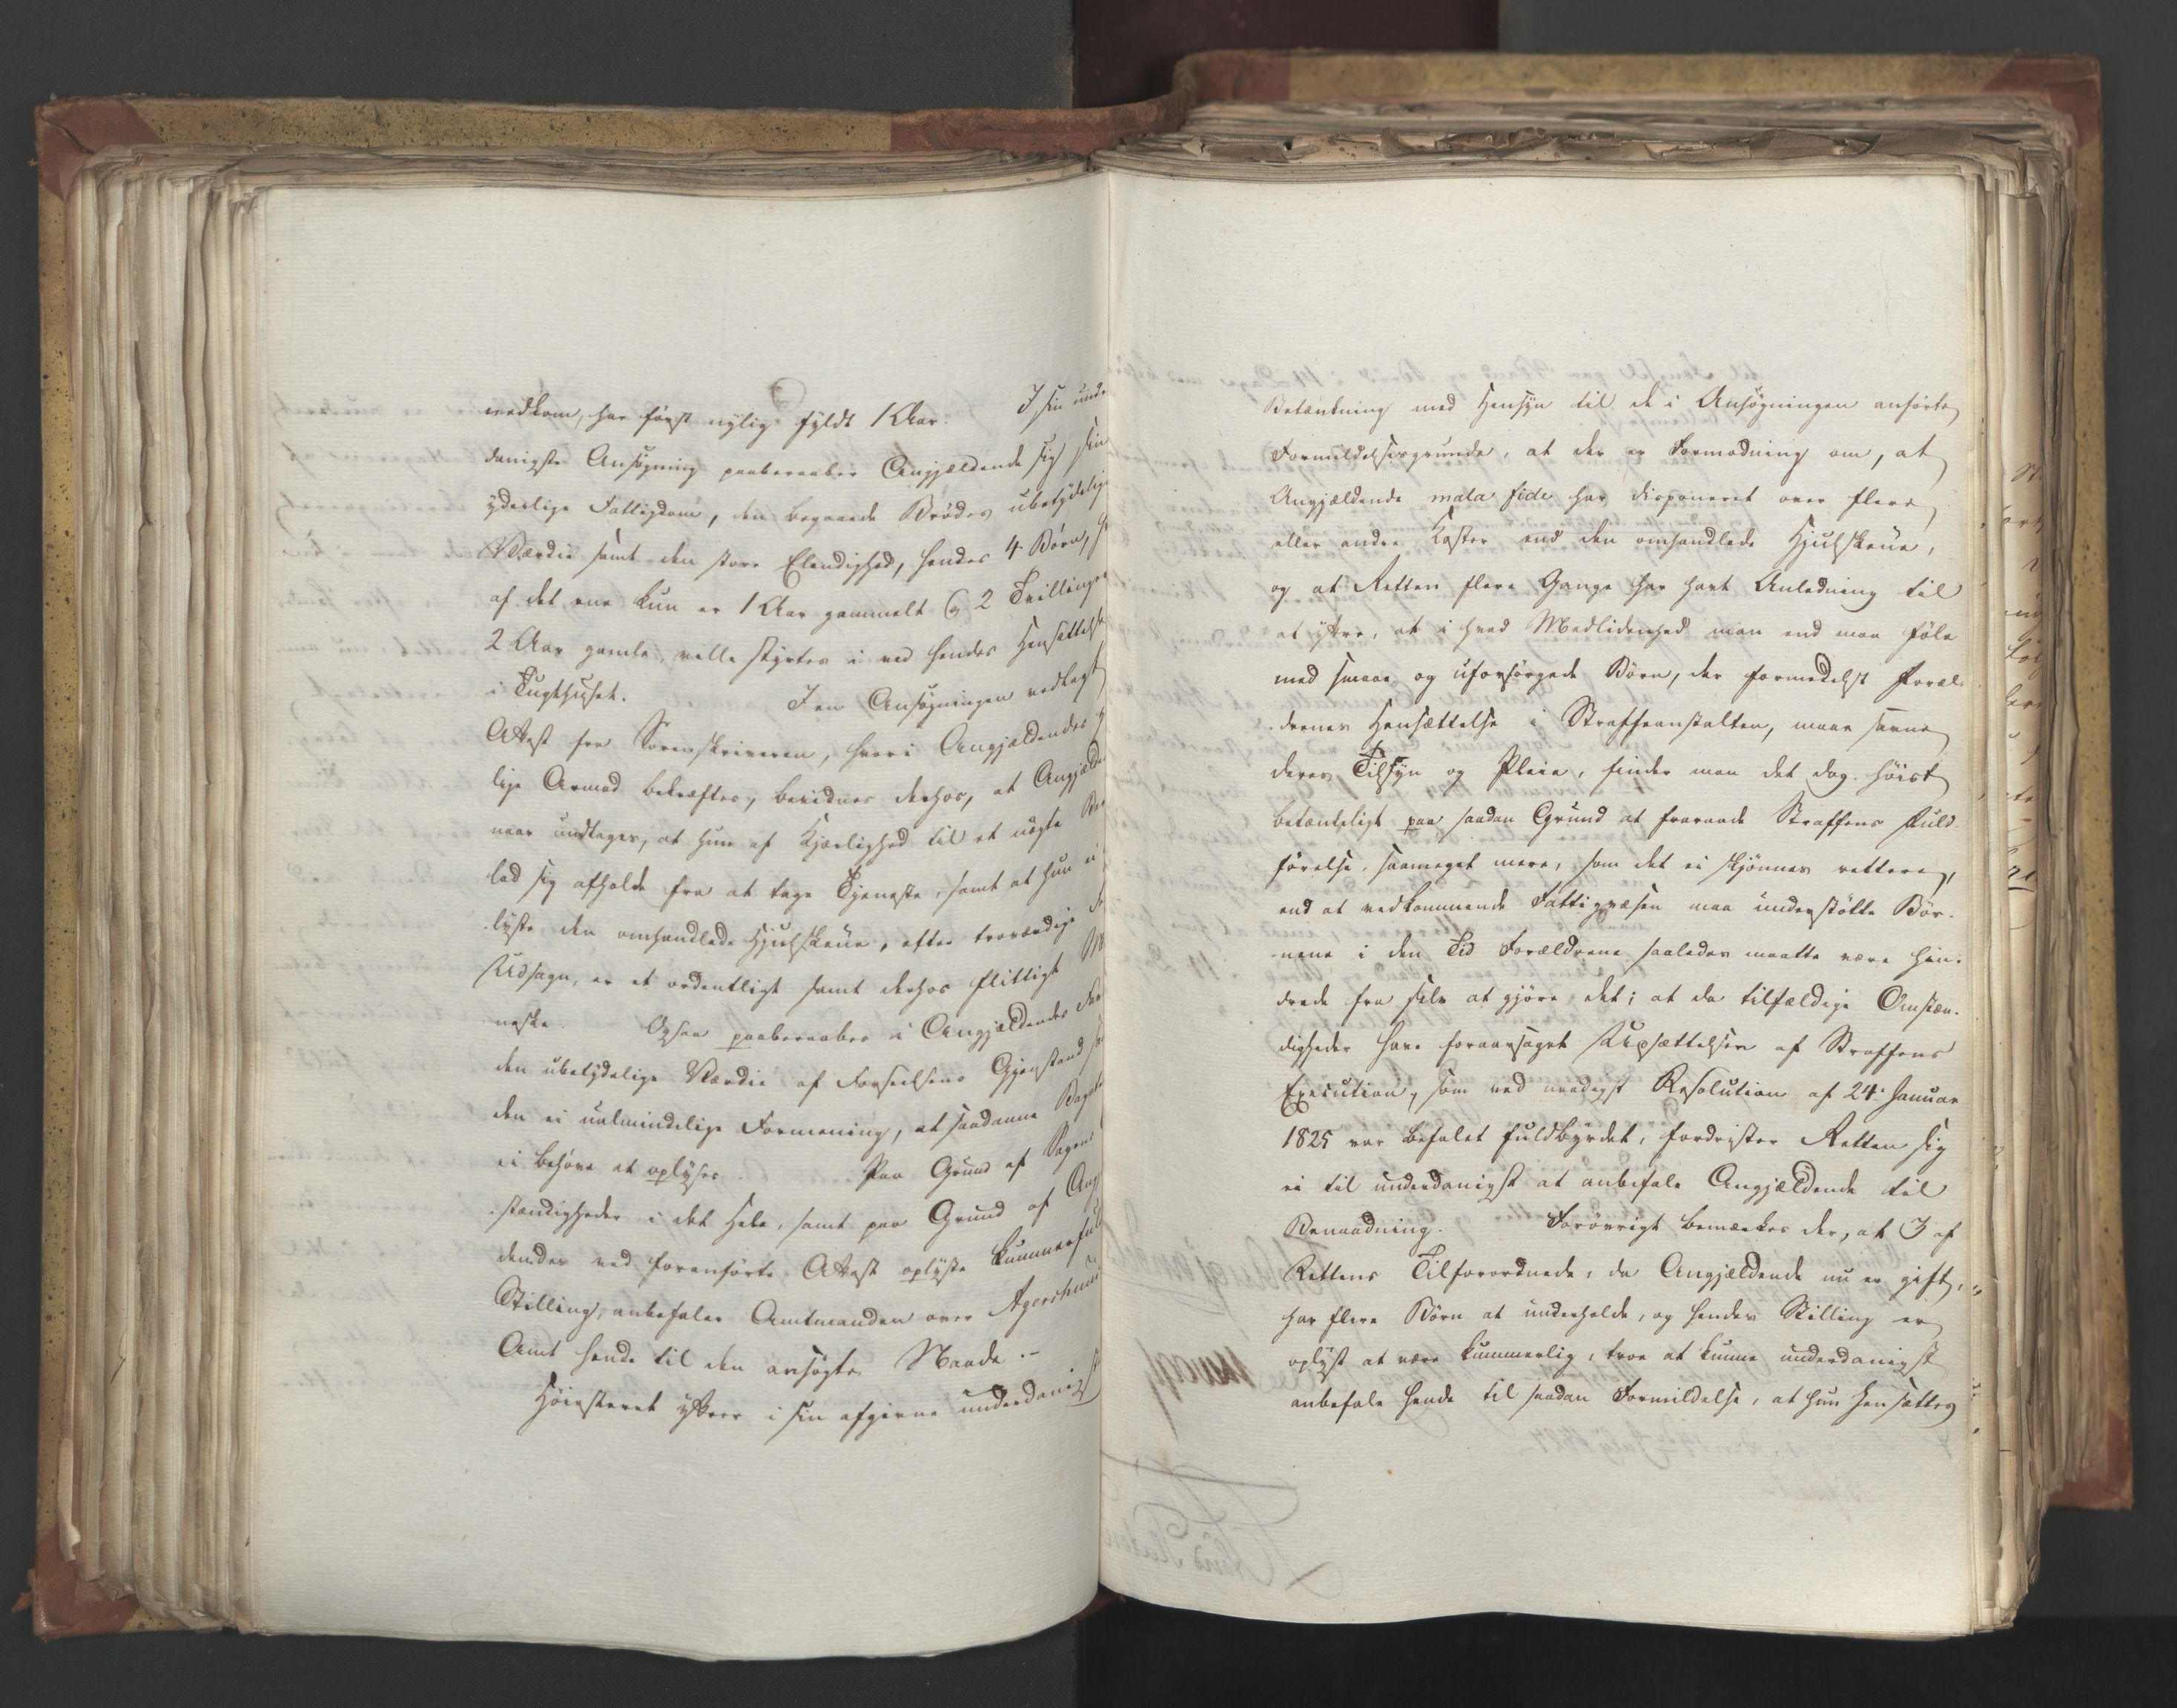 vedkom, har först nylig fyldt 1 Aar. I sin unde
danigste Ansögning paaberaaber Angjældende sig sin
yderlige Fattigdom, den begaaede Brödes ubetydelige
Værdie samt den store Elendighed, hendes 4 Börn, h
af det ene kun er 1 Aar gammelt og 2 Tvillinger
2 Aar gamle, ville styrtes i ved hendes Hensættelse
i Tugthuset. I en Ansögningen vedlagt
Attest fra Sorenskriveren, hvori Angjældendes
lige Armod bekræftes, bevidnes derhos, at Angjælde
naar undtages, at hun af Kjærlighed til et uægte Bar
lod sig afholde fra at tage Tjeneste, samt at hun ei
lyste den omhandlede Hjulskene, efter troværdige
Udsagn, er et ordentligt samt derhos flittigt M
neske. Ogsaa paaberaabes i Angjældendes
den ubetydelige Værdie af Forseelsens Gjenstand
den ei ualmindelige Formening, at saadanne Bagate
ei behöve at oplyses. Paa Grund af Sagens
stændigheder i det Hele, samt paa Grund af Ang
dendes ved foranförte Attest oplyste kummerful
Stilling, anbefaler Amtmanden over Agershuus
Amt hende til den ansögte Naade. –
Höiesteret yttrer i sin afgivne underdanigst
Betænkning med Hensyn til de i Ansögningen anförte
Formildelsesgrunde, at der er Formodning om, at
Angjældende mala fide har disponeret over flere
eller andre Koster end den omhandlede Hjulskene,
og at Retten flere Gange har havt Anledning til
at yttre, at i hvad Medlidenhed man end maa föle
med smaae og uforsörgede Börn, der formedelst Foræl-
drenes Hensættelse i Straffeanstalten, maae savne
deres Tilsyn og Pleie, finder man det dog höist
betænkeligt paa saadan Grund at fraraade Straffens Fuld-
förelse, saameget mere, som det ei skjönnes rettere,
end at vedkommende Fattigvæsen maa understötte Bör-
nene i den Tid Forældrene saaledes maatte være hin-
drede fra selv at gjöre det; at da tilfældige Omstæn-
digheder have foraarsaget Udsættelsen af Straffens
Execution, som ved naadigst Resolution af 24. Januar
1825 var befalet fuldbyrdet, fordrister Retten sig
ei til underdanigst at anbefale Angjældende til
Benaadning. Forövrigt bemærkes der, at 3 af
Rettens Tilforordnede, da Angjældende nu er gift,
har flere Börn at underholde, og hendes Stilling er
oplyst at være kummerlig, troe at kunne underdanigst
anbefale hende til saadan Formildelse, at hun hensættes